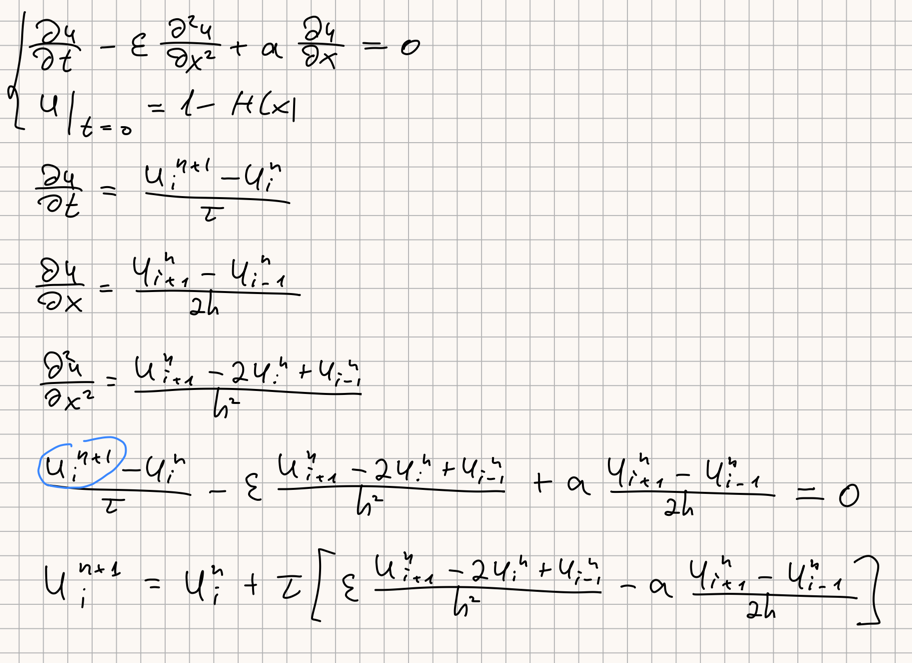 ∂u/∂t − ε ∂²u/∂x² + a ∂u/∂x = 0
u|_{t=0} = 1 − H(x)
∂u/∂t = (u_i^{n+1} − u_i^n)/τ
∂u/∂x = (u_{i+1}^n − u_{i−1}^n)/2h
∂²u/∂x² = (u_{i+1}^n − 2u_i^n + u_{i−1}^n)/h²
(u_i^{n+1} − u_i^n)/τ − ε (u_{i+1}^n − 2u_i^n + u_{i−1}^n)/h² + a (u_{i+1}^n − u_{i−1}^n)/2h = 0
u_i^{n+1} = u_i^n + τ[ε (u_{i+1}^n − 2u_i^n + u_{i−1}^n)/h² − a (u_{i+1}^n − u_{i−1}^n)/2h]